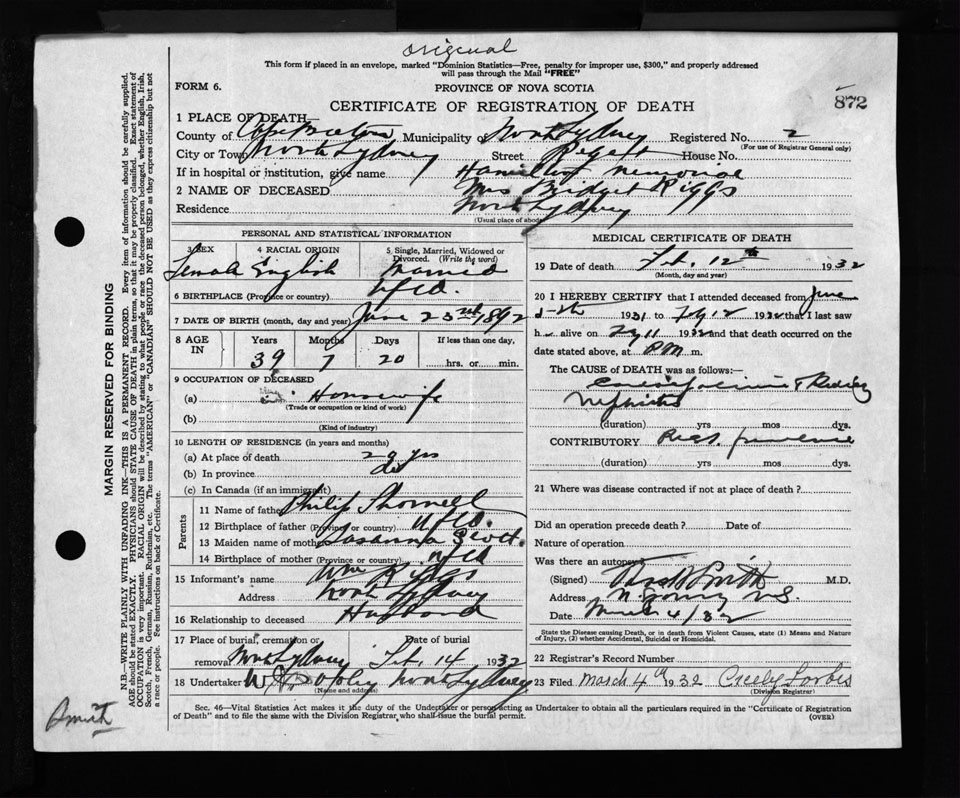 original
This form if placed in an envelope, marked "Dominion Statistics—Free, penalty for improper use, $300," and properly addressed
will pass through the Mail "FREE"
FORM 6.
PROVINCE OF NOVA SCOTIA
872
CERTIFICATE OF REGISTRATION OF DEATH
1 PLACE OF DEATH
County of Cape Breton Municipality of North Sydney Registered No. 2
(For use of Registrar General only)
City or Town North Sydney Street Regent House No.
If in hospital or institution, give name Hamilton Memorial
2 NAME OF DECEASED Mrs Bridget Riggs
Residence North Sydney
(Usual place of abode)
PERSONAL AND STATISTICAL INFORMATION
3 SEX 4 RACIAL ORIGIN 5 Single, Married, Widowed or Divorced. (Write the word)
Female English Married
6 BIRTHPLACE (Province or country) Nfld.
7 DATE OF BIRTH (month, day and year) June 23rd 1892
8 AGE IN Years Months Days If less than one day,
39 7 20 hrs. or min.
9 OCCUPATION OF DECEASED
(a) Housewife
(Trade or occupation or kind of work)
(b)
(Kind of industry)
10 LENGTH OF RESIDENCE (in years and months)
(a) At place of death 29 yrs
(b) In province do
(c) In Canada (if an immigrant)
Parents
11 Name of father Philip Thornell
12 Birthplace of father (Province or country) Nfld.
13 Maiden name of mother Susanna Scott
14 Birthplace of mother (Province or country) Nfld
15 Informant's name Wm Riggs
Address North Sydney
16 Relationship to deceased Husband
17 Place of burial, cremation or removal North Sydney Date of burial Feb. 14 1932
18 Undertaker North Sydney
(Name and address)
MEDICAL CERTIFICATE OF DEATH
19 Date of death Feb. 12th 1932
(Month, day and year)
20 I HEREBY CERTIFY that I attended deceased from June
1931 to 12 1932 that I last saw
h alive on 11 1932 and that death occurred on the
date stated above, at PM m.
The CAUSE of DEATH was as follows:—
Nephritis
(duration) yrs mos dys.
CONTRIBUTORY
(duration) yrs mos dys.
21 Where was disease contracted if not at place of death?
Did an operation precede death? Date of
Nature of operation
Was there an autopsy
(Signed) Smith M.D.
Address N. Sydney N.S.
Date March 4/32
State the Disease causing Death, or in death from Violent Causes, state (1) Means and Nature of Injury, (2) whether Accidental, Suicidal or Homicidal.
22 Registrar's Record Number
23 Filed March 4th 1932 Forbes
(Division Registrar)
Sec. 46—Vital Statistics Act makes it the duty of the Undertaker or person acting as Undertaker to obtain all the particulars required in the "Certificate of Registration
of Death" and to file the same with the Division Registrar who shall issue the burial permit.
(OVER)
MARGIN RESERVED FOR BINDING
N.B.—WRITE PLAINLY WITH UNFADING INK—THIS IS A PERMANENT RECORD. Every item of information should be carefully supplied.
AGE should be stated EXACTLY. PHYSICIANS should STATE CAUSE OF DEATH in plain terms, so that it may be properly classified. Exact statement of
OCCUPATION is very important. RACIAL ORIGIN will be described by stating to what people or race the deceased person belonged, whether English, Irish,
Scotch, French, German, Russian, Ruthenian, etc. The terms "AMERICAN" or "CANADIAN" SHOULD NOT BE USED as they express citizenship but not
a race or people. See instructions on back of Certificate.
Smith